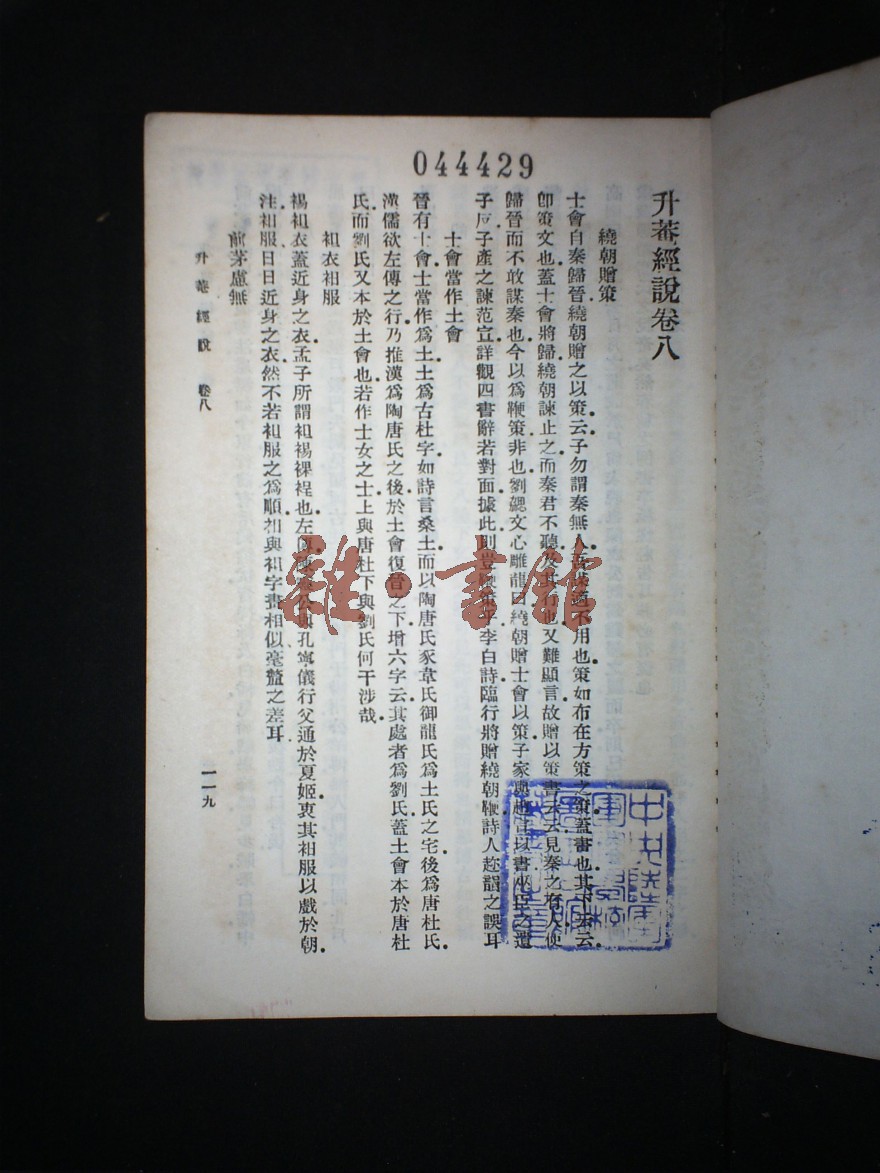 044429
升菴經說卷八
繞朝贈策
士會自秦歸晉繞朝贈之以策云子勿謂秦無人吾謀適不用也策如布在方策之策蓋書也其下云云
卽策文也蓋士會將歸繞朝諫止之而秦君不聽及其行也又難顯言故贈以策書云云見秦之有人使
歸晉而不敢謀秦也今以爲鞭策非也劉勰文心雕龍曰繞朝贈士會以策子家與趙宣以書巫臣之遺
子反子產之諫范宣詳觀四書辭若對面據此則豈鞭策乎李白詩臨行將贈繞朝鞭詩人趁韻之誤耳
士會當作土會
晉有士會士當作爲土土爲古杜字如詩言桑土而以陶唐氏豕韋氏御龍氏爲土氏之宅後爲唐杜氏
漢儒欲左傳之行乃推漢爲陶唐氏之後於土會復晉之下增六字云其處者爲劉氏蓋土會本於唐杜
氏而劉氏又本於土會也若作士女之士上與唐杜下與劉氏何干涉哉
袒衣衵服
裼袒衣蓋近身之衣孟子所謂袒裼裸裎也左傳陳靈公與孔寧儀行父通於夏姬衷其衵服以戲於朝
注衵服日日近身之衣然不若袒服之爲順袒與衵字畫相似毫釐之差耳
前茅慮無
升菴經說 卷八
一一九
雜·書館